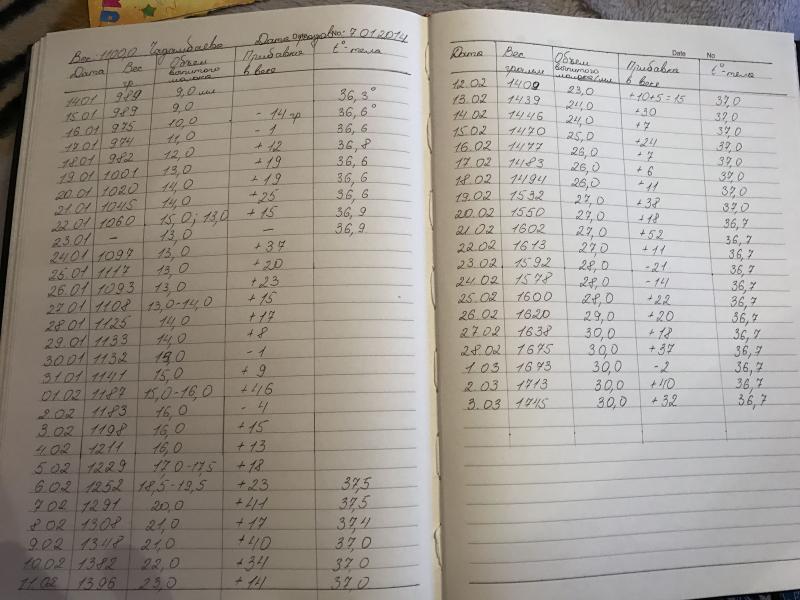 Вес: 1100,0 Дата родов No: 7.01.2014
Дата Вес гр Объем выпитого молока Прибавка в весе t°-тела
14.01 989 9,0 мл 36,3°
15.01 989 9,0 36,6°
16.01 975 10,0 - 14 гр 36,6
17.01 974 11,0 - 1 36,8
18.01 982 12,0 +12 36,6
19.01 1001 13,0 +19 36,6
20.01 1020 14,0 +19 36,6
21.01 1045 14,0 +25 36,9
22.01 1060 15,0; 13,0 +15 36,9
23.01 - 13,0 -
24.01 1097 13,0 +37
25.01 1117 13,0 +20
26.01 1093 13,0 +23
27.01 1108 13,0-14,0 +15
28.01 1125 14,0 +17
29.01 1133 14,0 +8
30.01 1132 15,0 - 1
31.01 1141 15,0 + 9
01.02 1187 15,0-16,0 +46
2.02 1183 16,0 - 4
3.02 1198 16,0 +15
4.02 1211 16,0 +13
5.02 1229 17,0-17,5 +18
6.02 1252 18,5-19,5 +23 37,5
7.02 1291 20,0 +41 37,5
8.02 1308 21,0 +17 37,4
9.02 1348 21,0 +40 37,0
10.02 1382 22,0 +34 37,0
11.02 1396 23,0 +14 37,0
Date No
Дата Вес грамм Объем выпитого молока мл Прибавка в весе t°-тела
12.02 1409 23,0 +10+5=15 37,0
13.02 1439 24,0 +30 37,0
14.02 1446 24,0 +7 37,0
15.02 1470 25,0 +24 37,0
16.02 1477 26,0 +7 37,0
17.02 1483 26,0 + 6 37,0
18.02 1494 26,0 +11 37,0
19.02 1532 27,0 +38 36,7
20.02 1550 27,0 +18 36,7
21.02 1602 27,0 +52 36,7
22.02 1613 27,0 +11 36,7
23.02 1592 28,0 -21 36,7
24.02 1578 28,0 -14 36,7
25.02 1600 28,0 +22 36,7
26.02 1620 29,0 +20 36,7
27.02 1638 30,0 +18 36,7
28.02 1675 30,0 +37 36,7
1.03 1673 30,0 -2 36,7
2.03 1713 30,0 +40 36,7
3.03 1745 30,0 +32 36,7